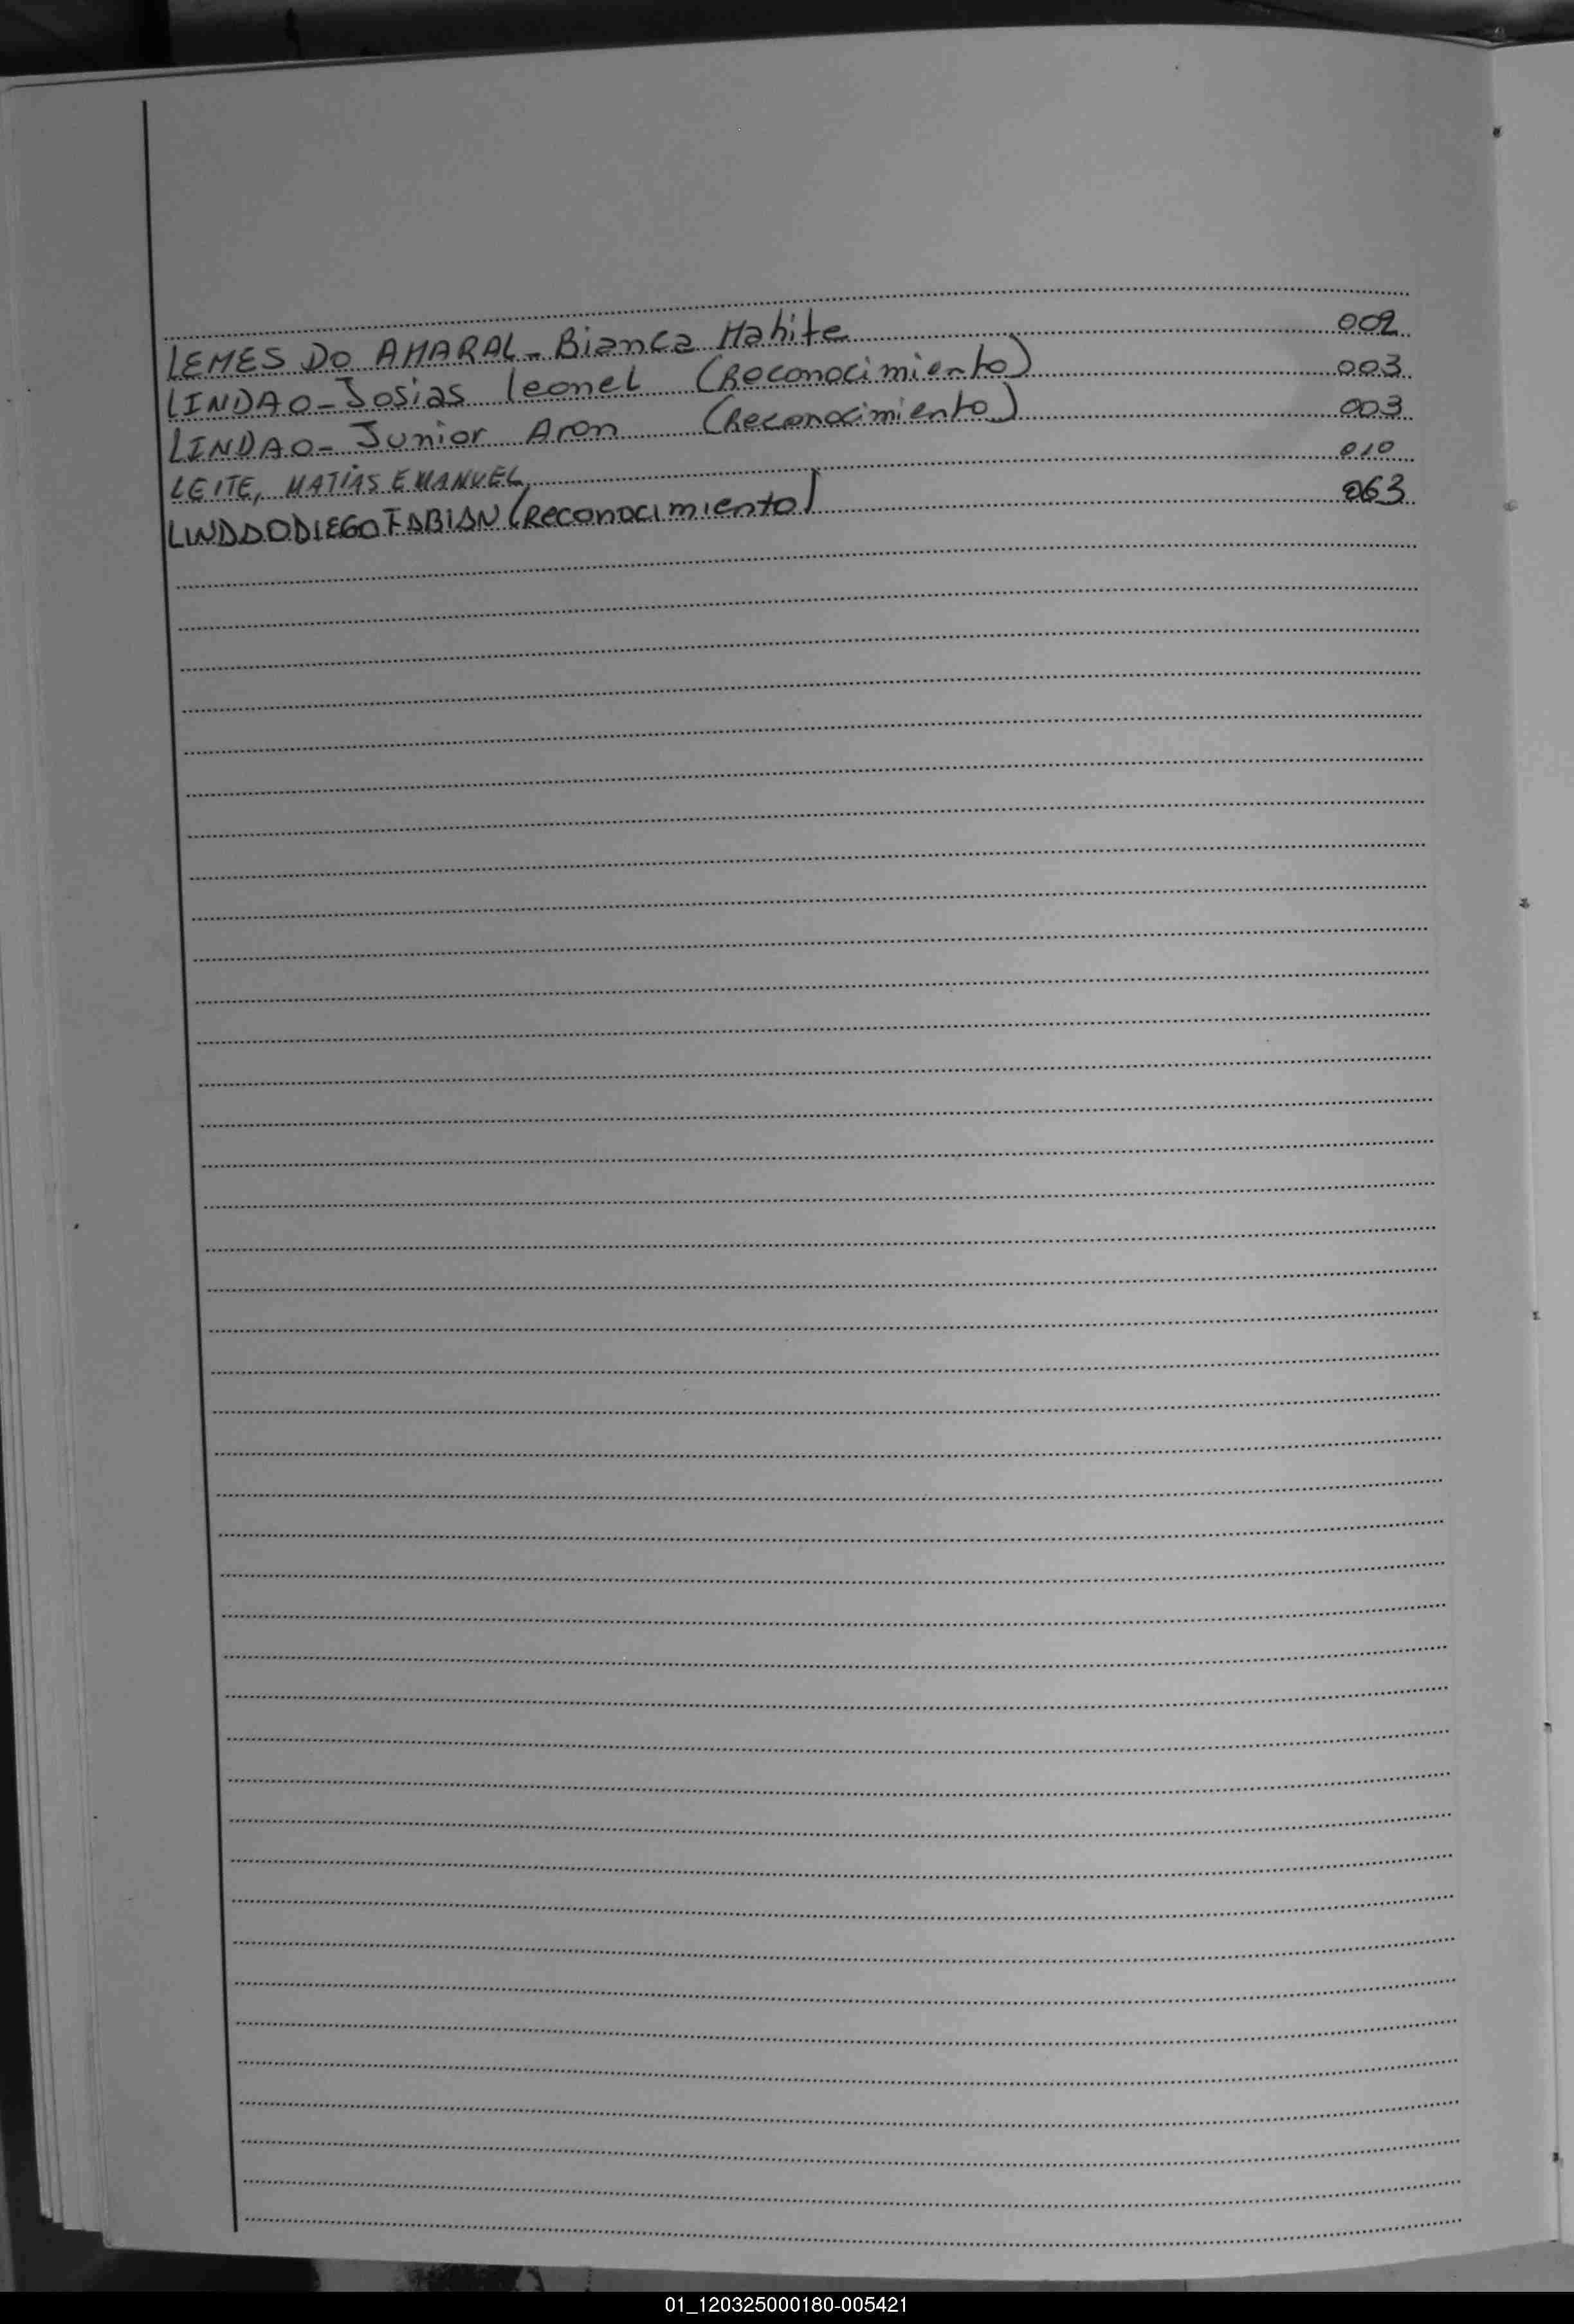 LEMES DO AMARAL - Bianca Mahite 002
LINDAO - Josias Leonel (Reconocimiento) 003
LINDAO - Junior Aron (Reconocimiento) 003
LEITE, MATÍAS EMANUEL 010
LINDAO DIEGO FABIAN (Reconocimiento) 063
01_120325000180-005421